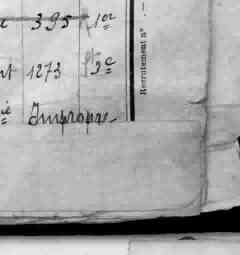 395 1er
1273 2e
Impropre
Recrutement n°